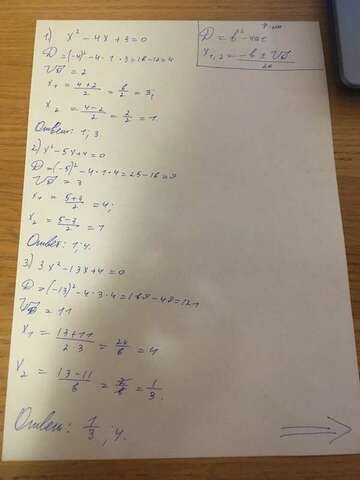 1) x² - 4x + 3 = 0
D = (-4)² - 4 · 1 · 3 = 16 - 12 = 4
√D = 2
x₁ = (4+2)/2 = 6/2 = 3;
x₂ = (4-2)/2 = 2/2 = 1.
Ответ: 1; 3.
2) x² - 5x + 4 = 0
D = (-5)² - 4 · 1 · 4 = 25 - 16 = 9
√D = 3
x₁ = (5+3)/2 = 4;
x₂ = (5-3)/2 = 1
Ответ: 1; 4.
3) 3x² - 13x + 4 = 0
D = (-13)² - 4 · 3 · 4 = 169 - 48 = 121
√D = 11
x₁ = (13+11)/(2·3) = 24/6 = 4
x₂ = (13-11)/6 = 2/6 = 1/3.
Ответ: 1/3; 4.
D = b² - 4ac
x₁,₂ = (-b ± √D)/2a